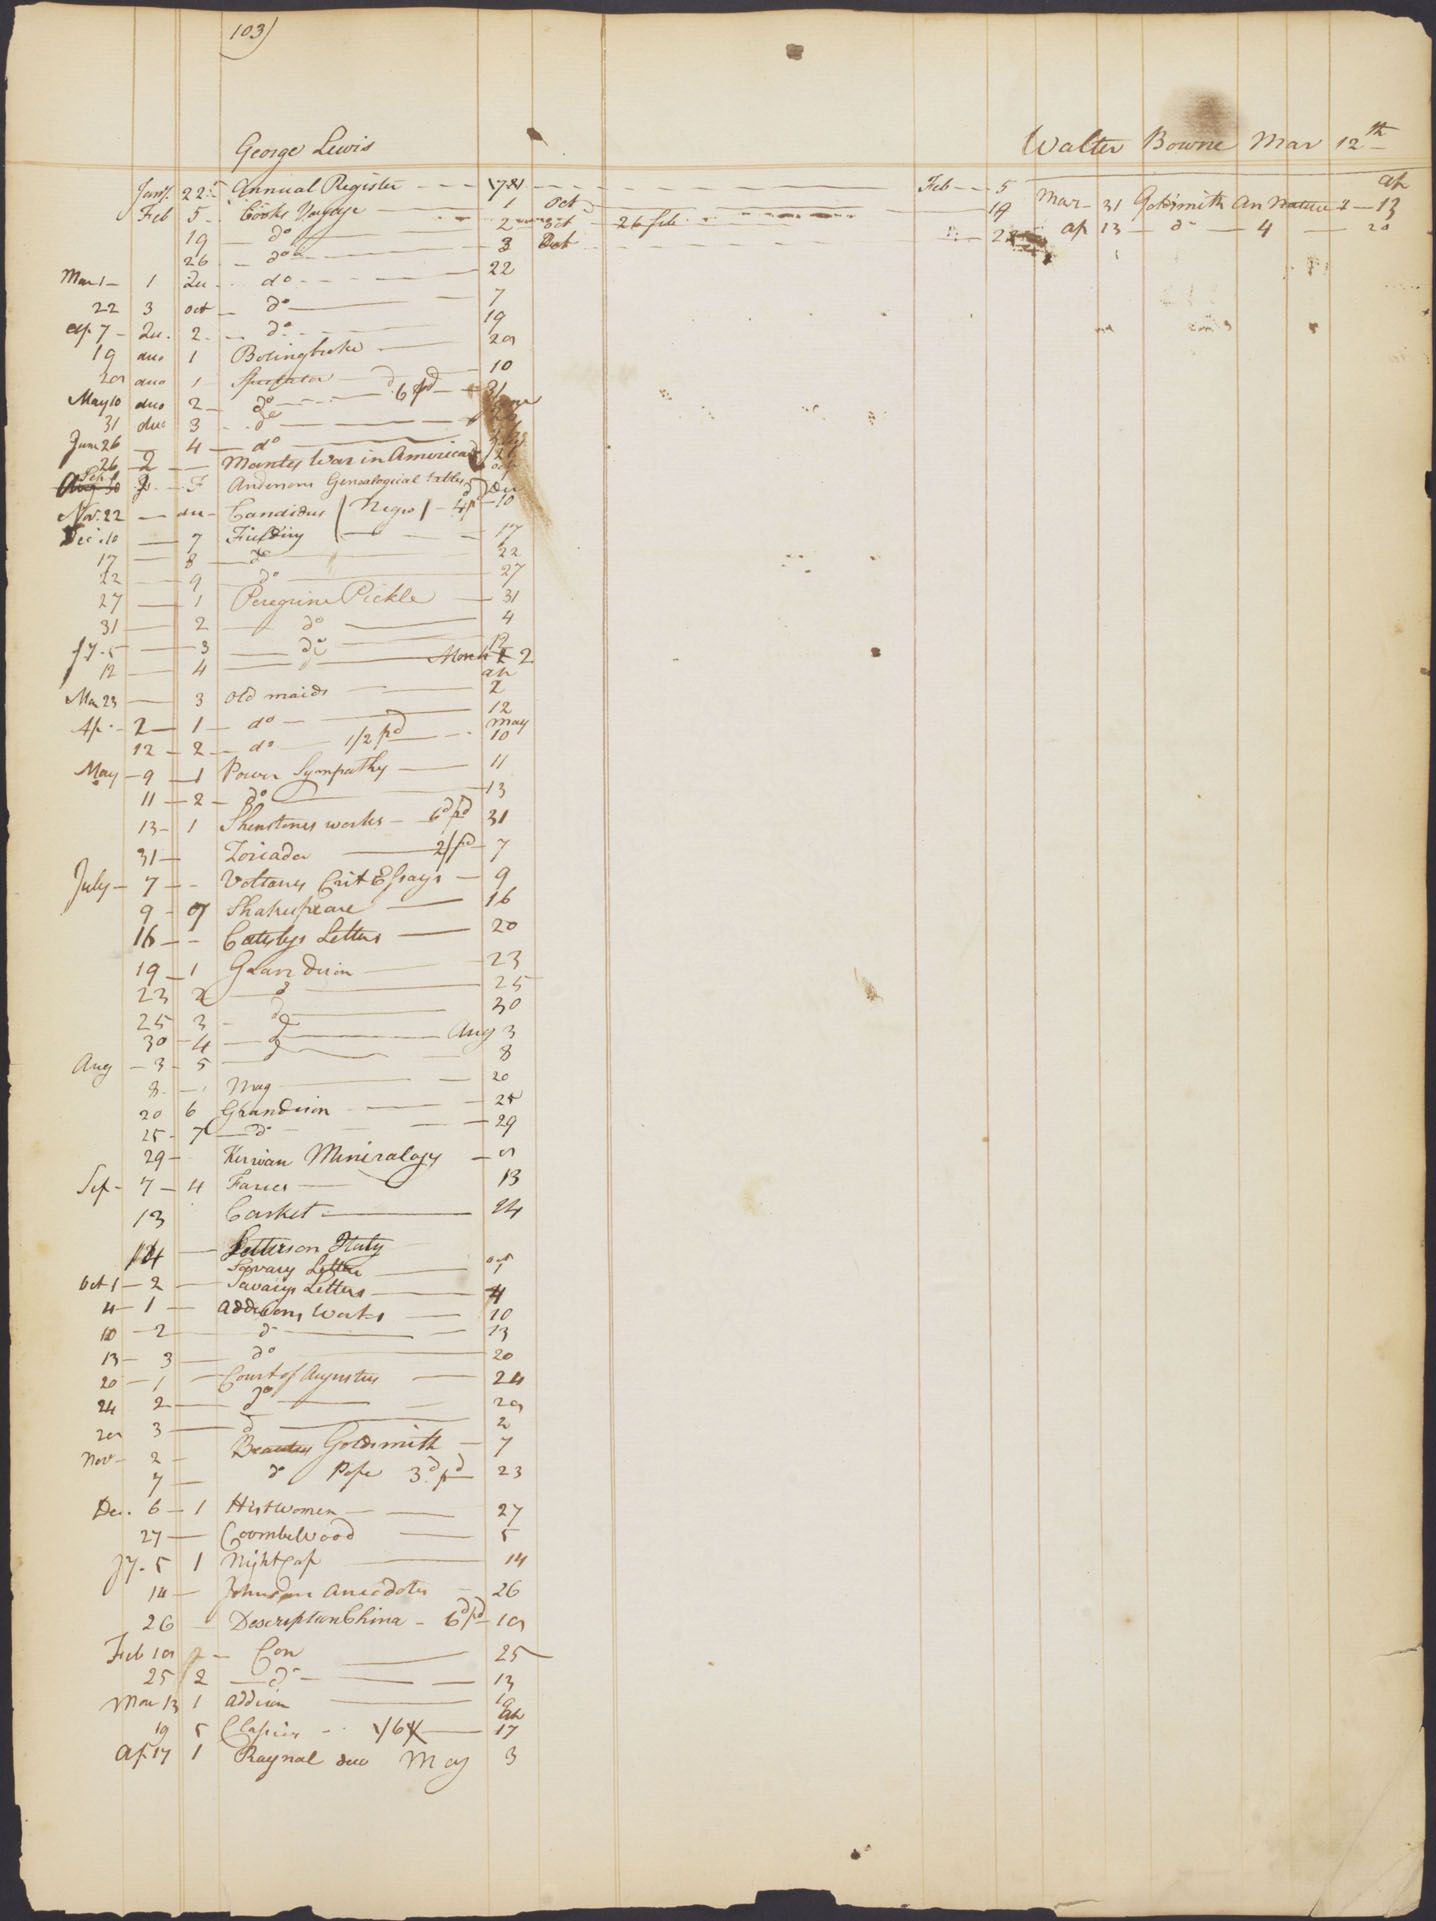 103)
George Lewis
Walter Bowne Mar 12th
Jany. 22 Annual Register 1781 Feb 5
Feb 5 Cooks Voyage 1 Oct 19
19 do 2 Oct 26 feb
26 do 3 Oct
Mar 1 1 Qu do 22
22 3 oct do 7
Ap 7 Qu. 2 do 19
19 duo 1 Bolingbroke 29
29 duo 1 Spectator 10
May 10 duo 2 do 6d pd 31
31 duo 3 do
June 26 4 do
26 2 Mantes War in America
Sep 1 F Andersons Genealogical tables
Nov. 22 duo Candidus (Negro) 4d pd Dec 10
Dec. 10 7 Fielding 17
17 8 do 22
22 9 do 27
27 1 Peregrine Pickle 31
31 2 do 4
Jy. 5 3 do 12
12 4 March 2
Mar 23 3 old maids ap 2
Ap. 2 1 do 12
12 2 do 1/2 pd may 10
May 9 1 Power Sympathy 11
11 2 do 13
13 1 Shenstones works 6d pd 31
31 Zoriada 2/ pd 7
July 7 Voltaires Crit Essays 9
9 9 Shakespeare 16
16 Catesbys Letters 20
19 1 Grandison 23
23 2 d 25
25 3 d 30
30 4 d Aug 3
Aug 3 5 d 8
8 Mag 20
20 6 Grandison 25
25 7 do 29
29 Kirwan Mineralogy 9
Sep 7 4 Farces 13
13 Casket 24
14 Letters on Italy
Savary Letters oct 1
Oct 1 2 Savarys Letters 4
4 1 Addisons Works 10
10 2 do 13
13 3 do 20
20 1 Court of Augustus 24
24 2 do 29
29 3 d 2
Nov 2 Beauties Goldsmith 7
7 do Pope 3d pd 23
Dec. 6 1 Hist Women 27
27 Coombe Wood 5
Jy. 5 1 Night Cap 14
14 Johnson Anecdotes 26
26 Description China 6d pd 19
Feb 19 2 Con 25
25 2 do 13
Mar 13 1 Addison 19
19 5 Classics 1/6 ap 17
Ap. 17 1 Raynal duo May 3
Mar 31 Goldsmith An Nature 2 ap 13
ap 13 do 4 20